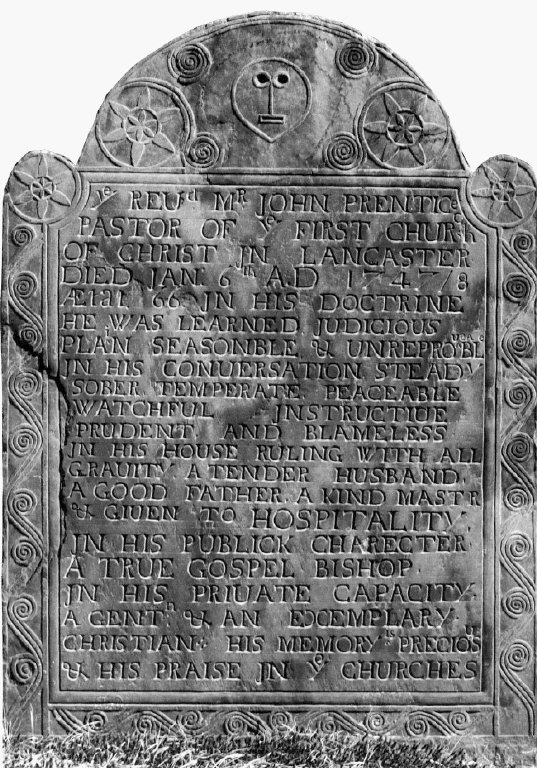 yᵉ REUᵈ Mᴿ JOHN PRENTICᵉ
PASTOR OF yᵉ FIRST CHURᶜh
OF CHRIST JN LANCASTER
DIED JAN. 6ᵗʰ A.D 1 7 4 7/8
ÆTAT 66 JN HIS DOCTRINE
HE WAS LEARNED JUDICIOUS
PLAN SEASONBLE & UNREPROᵁᶜᴬBLᵉ
JN HIS CONUERSATION STEADY
SOBER TEMPERATE PEACEABLE
WATCHFUL JNSTRUCTIUE
PRUDENT AND BLAMELESS
JN HIS HOUSE RULING WITH ALL
GRAUITY A TENDER HUSBAND
A GOOD FATHER A KIND MASTR
& GIUEN TO HOSPITALITY
JN HIS PUBLICK CHARECTER
A TRUE GOSPEL BISHOP
JN HIS PRIUATE CAPACITY
A GENTⁿ & AN EXCEMPLARY
CHRISTIAN HIS MEMORY ᴵˢ PRECIOᵁS
& HIS PRAISE JN yᵉ CHURCHES